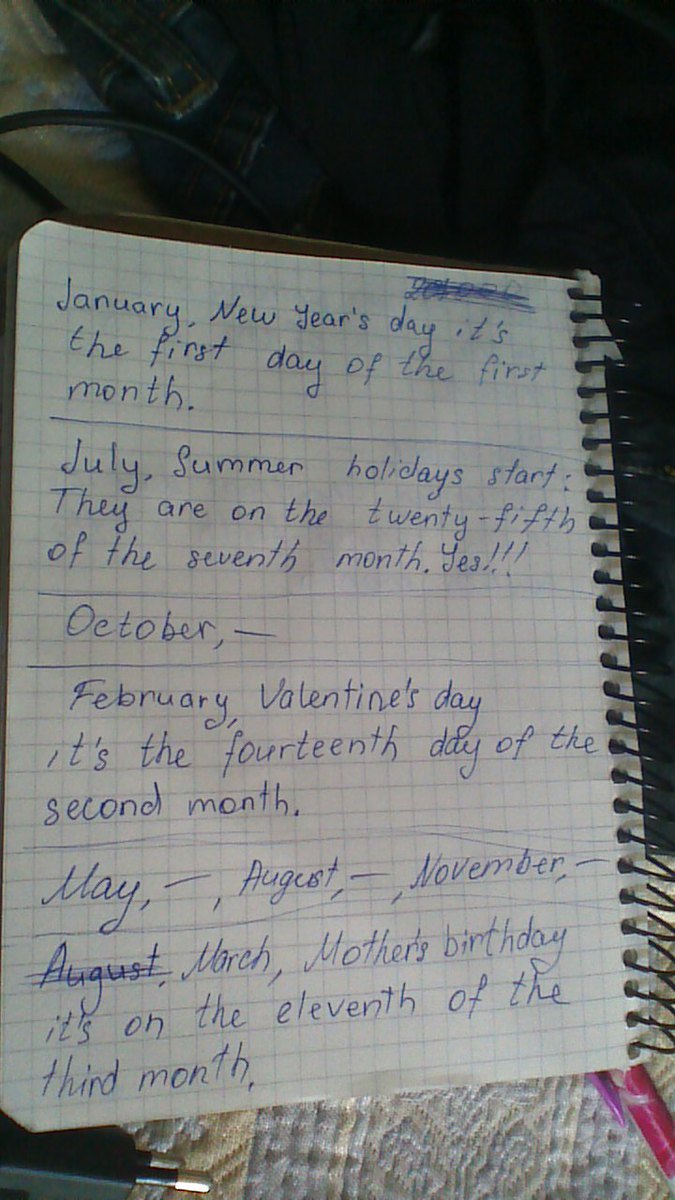 January, New Year's day it's
the first day of the first
month.
July, Summer holidays start:
They are on the twenty-fifth
of the seventh month. Yes!!!
October, —
February, Valentine's day
it's the fourteenth day of the
second month.
May, — , August, — , November, —
August, March, Mother's birthday
it's on the eleventh of the
third month.